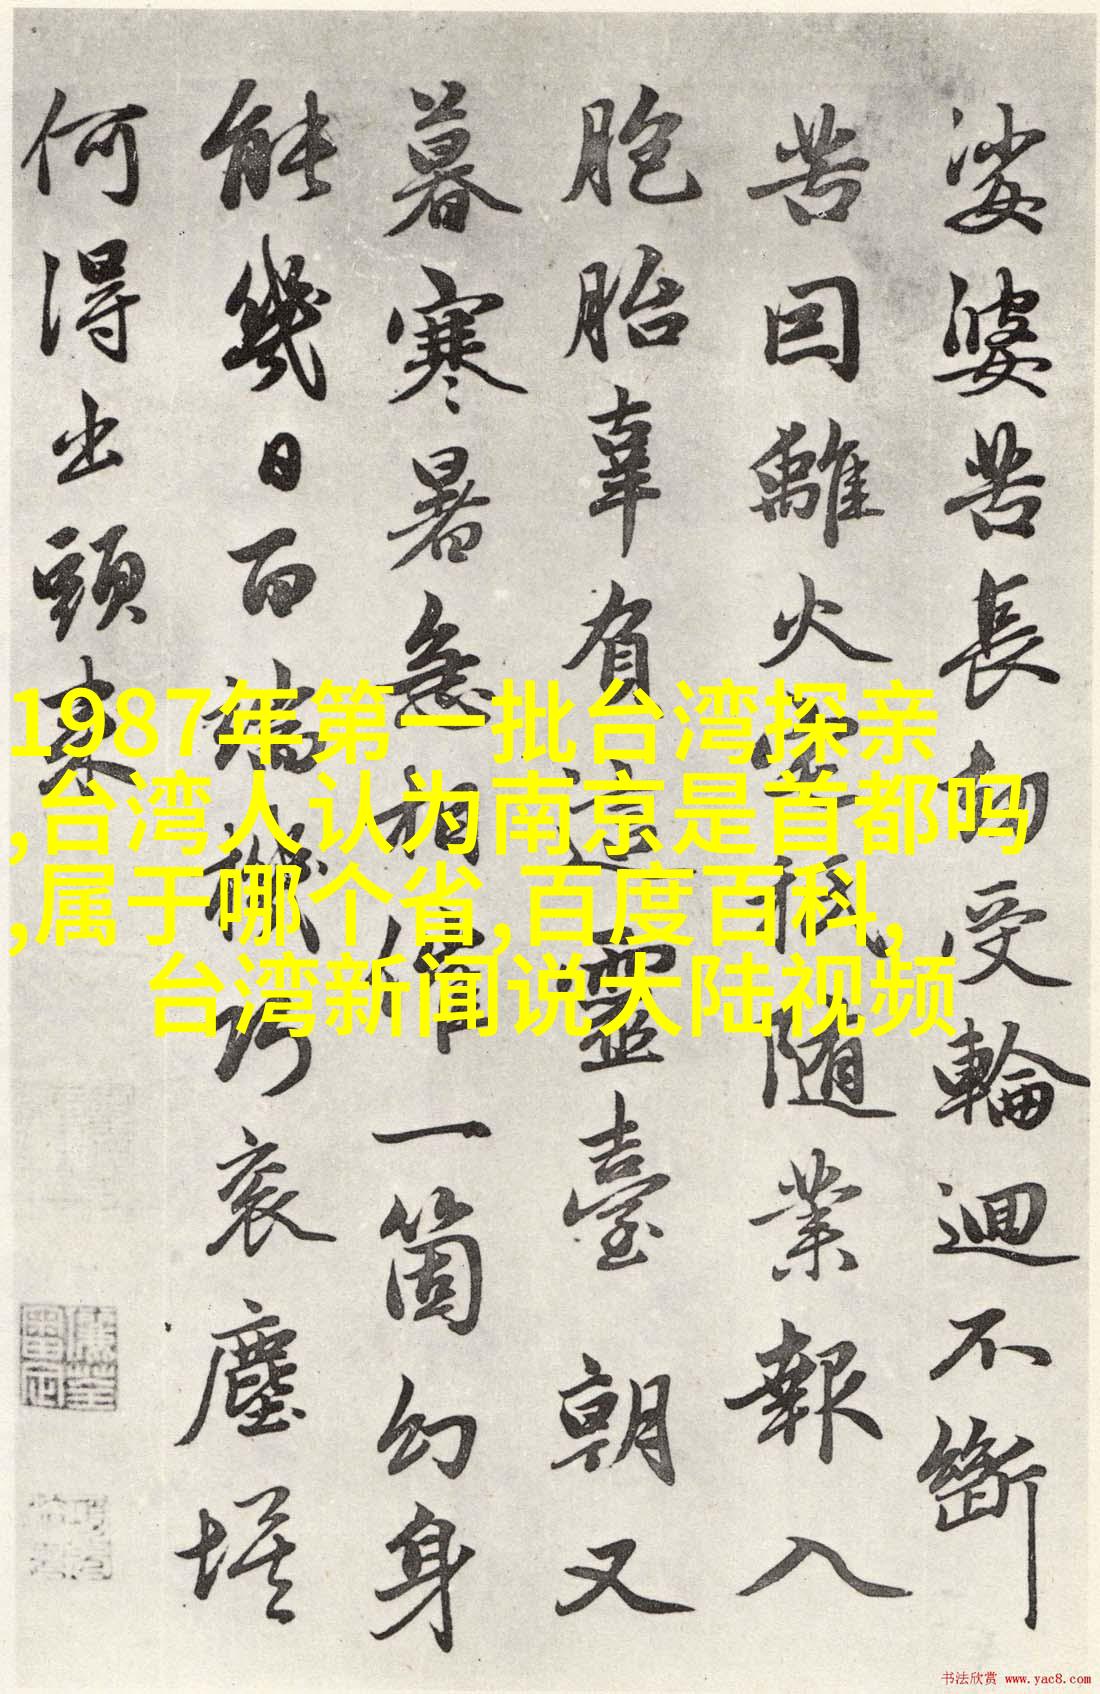 娑婆苦長劫受輪迴不斷
苦囙離火宅秖随業報入
胞胎辜負這靈臺朝又
暮寒暑急相催一箇幻身
能幾日百端機巧衮塵埃
何得出頭来
1987年第一批台湾探亲
,台湾人认为南京是首都吗
,属于哪个省,百度百科,
台湾新闻说大陆视频
书法欣赏 www.yac8.com